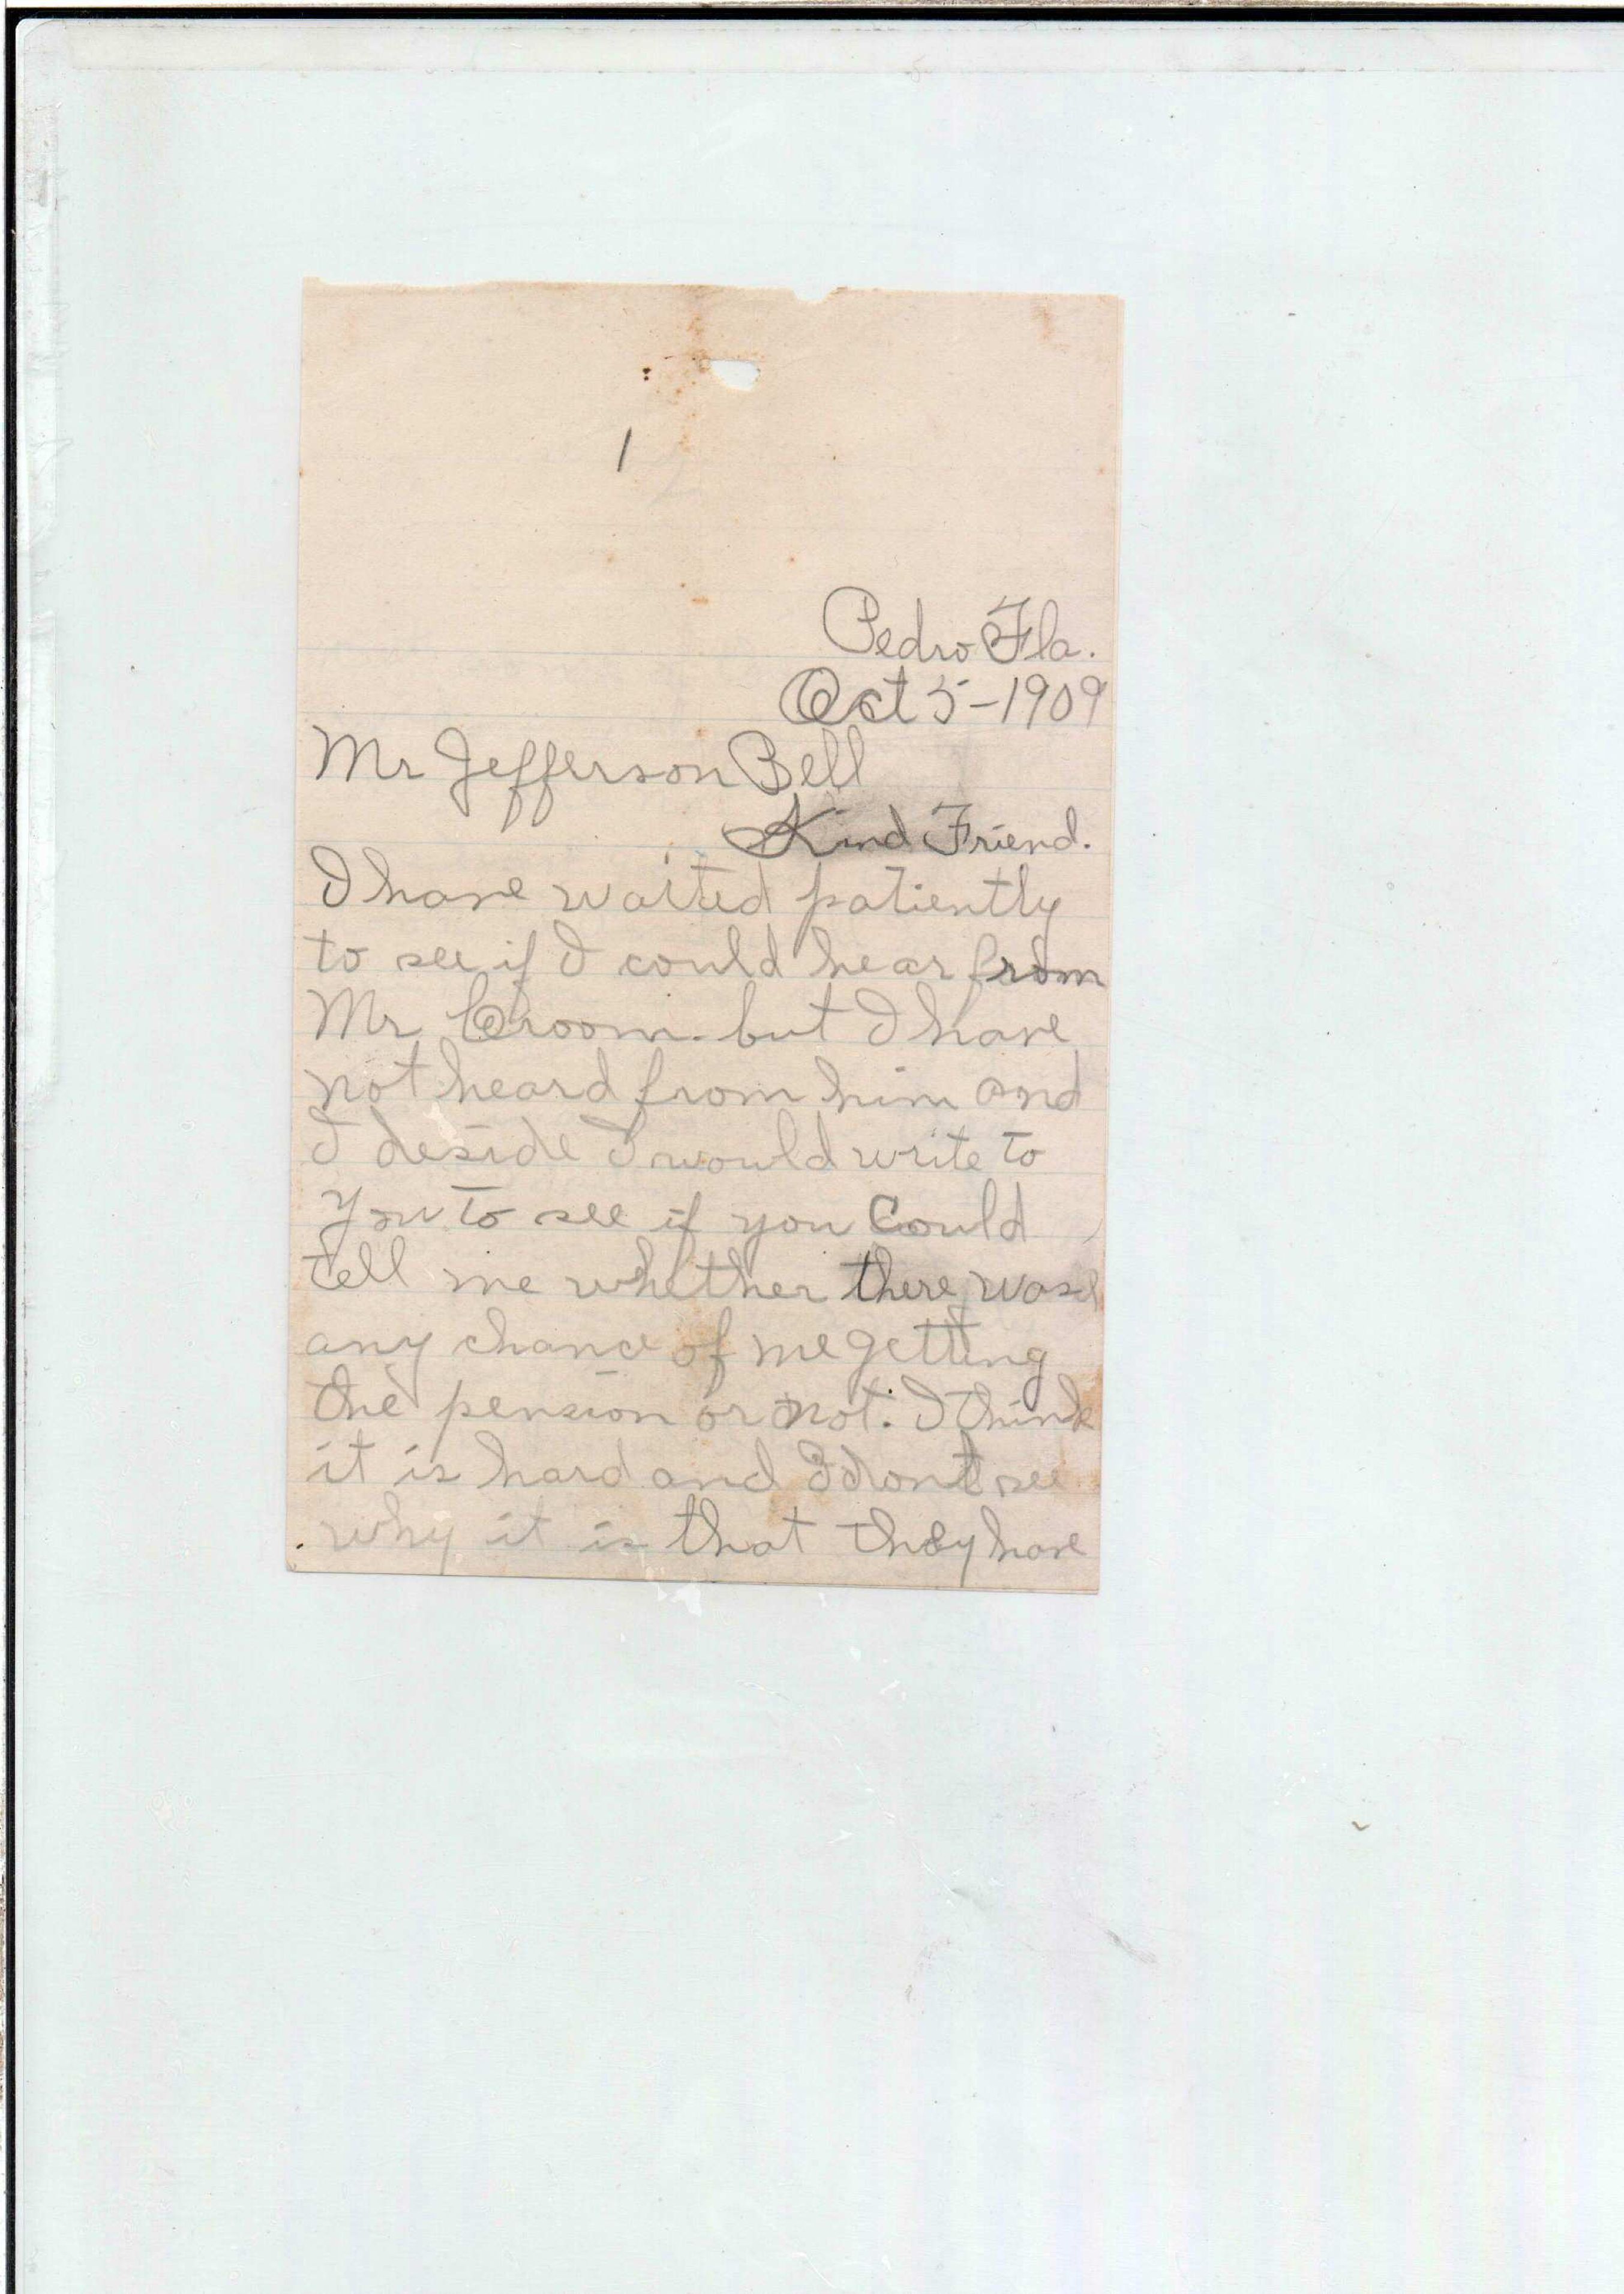 1
Pedro Fla.
Oct 5-1909
Mr Jefferson Bell
Kind Friend.
I have waited patiently
to see if I could hear from
Mr Croom. but I have
not heard from him and
I deside I would write to
you to see if you Could
tell me whether there was
any chance of me getting
the pension or not. I think
it is hard and I dont see
why it is that they have